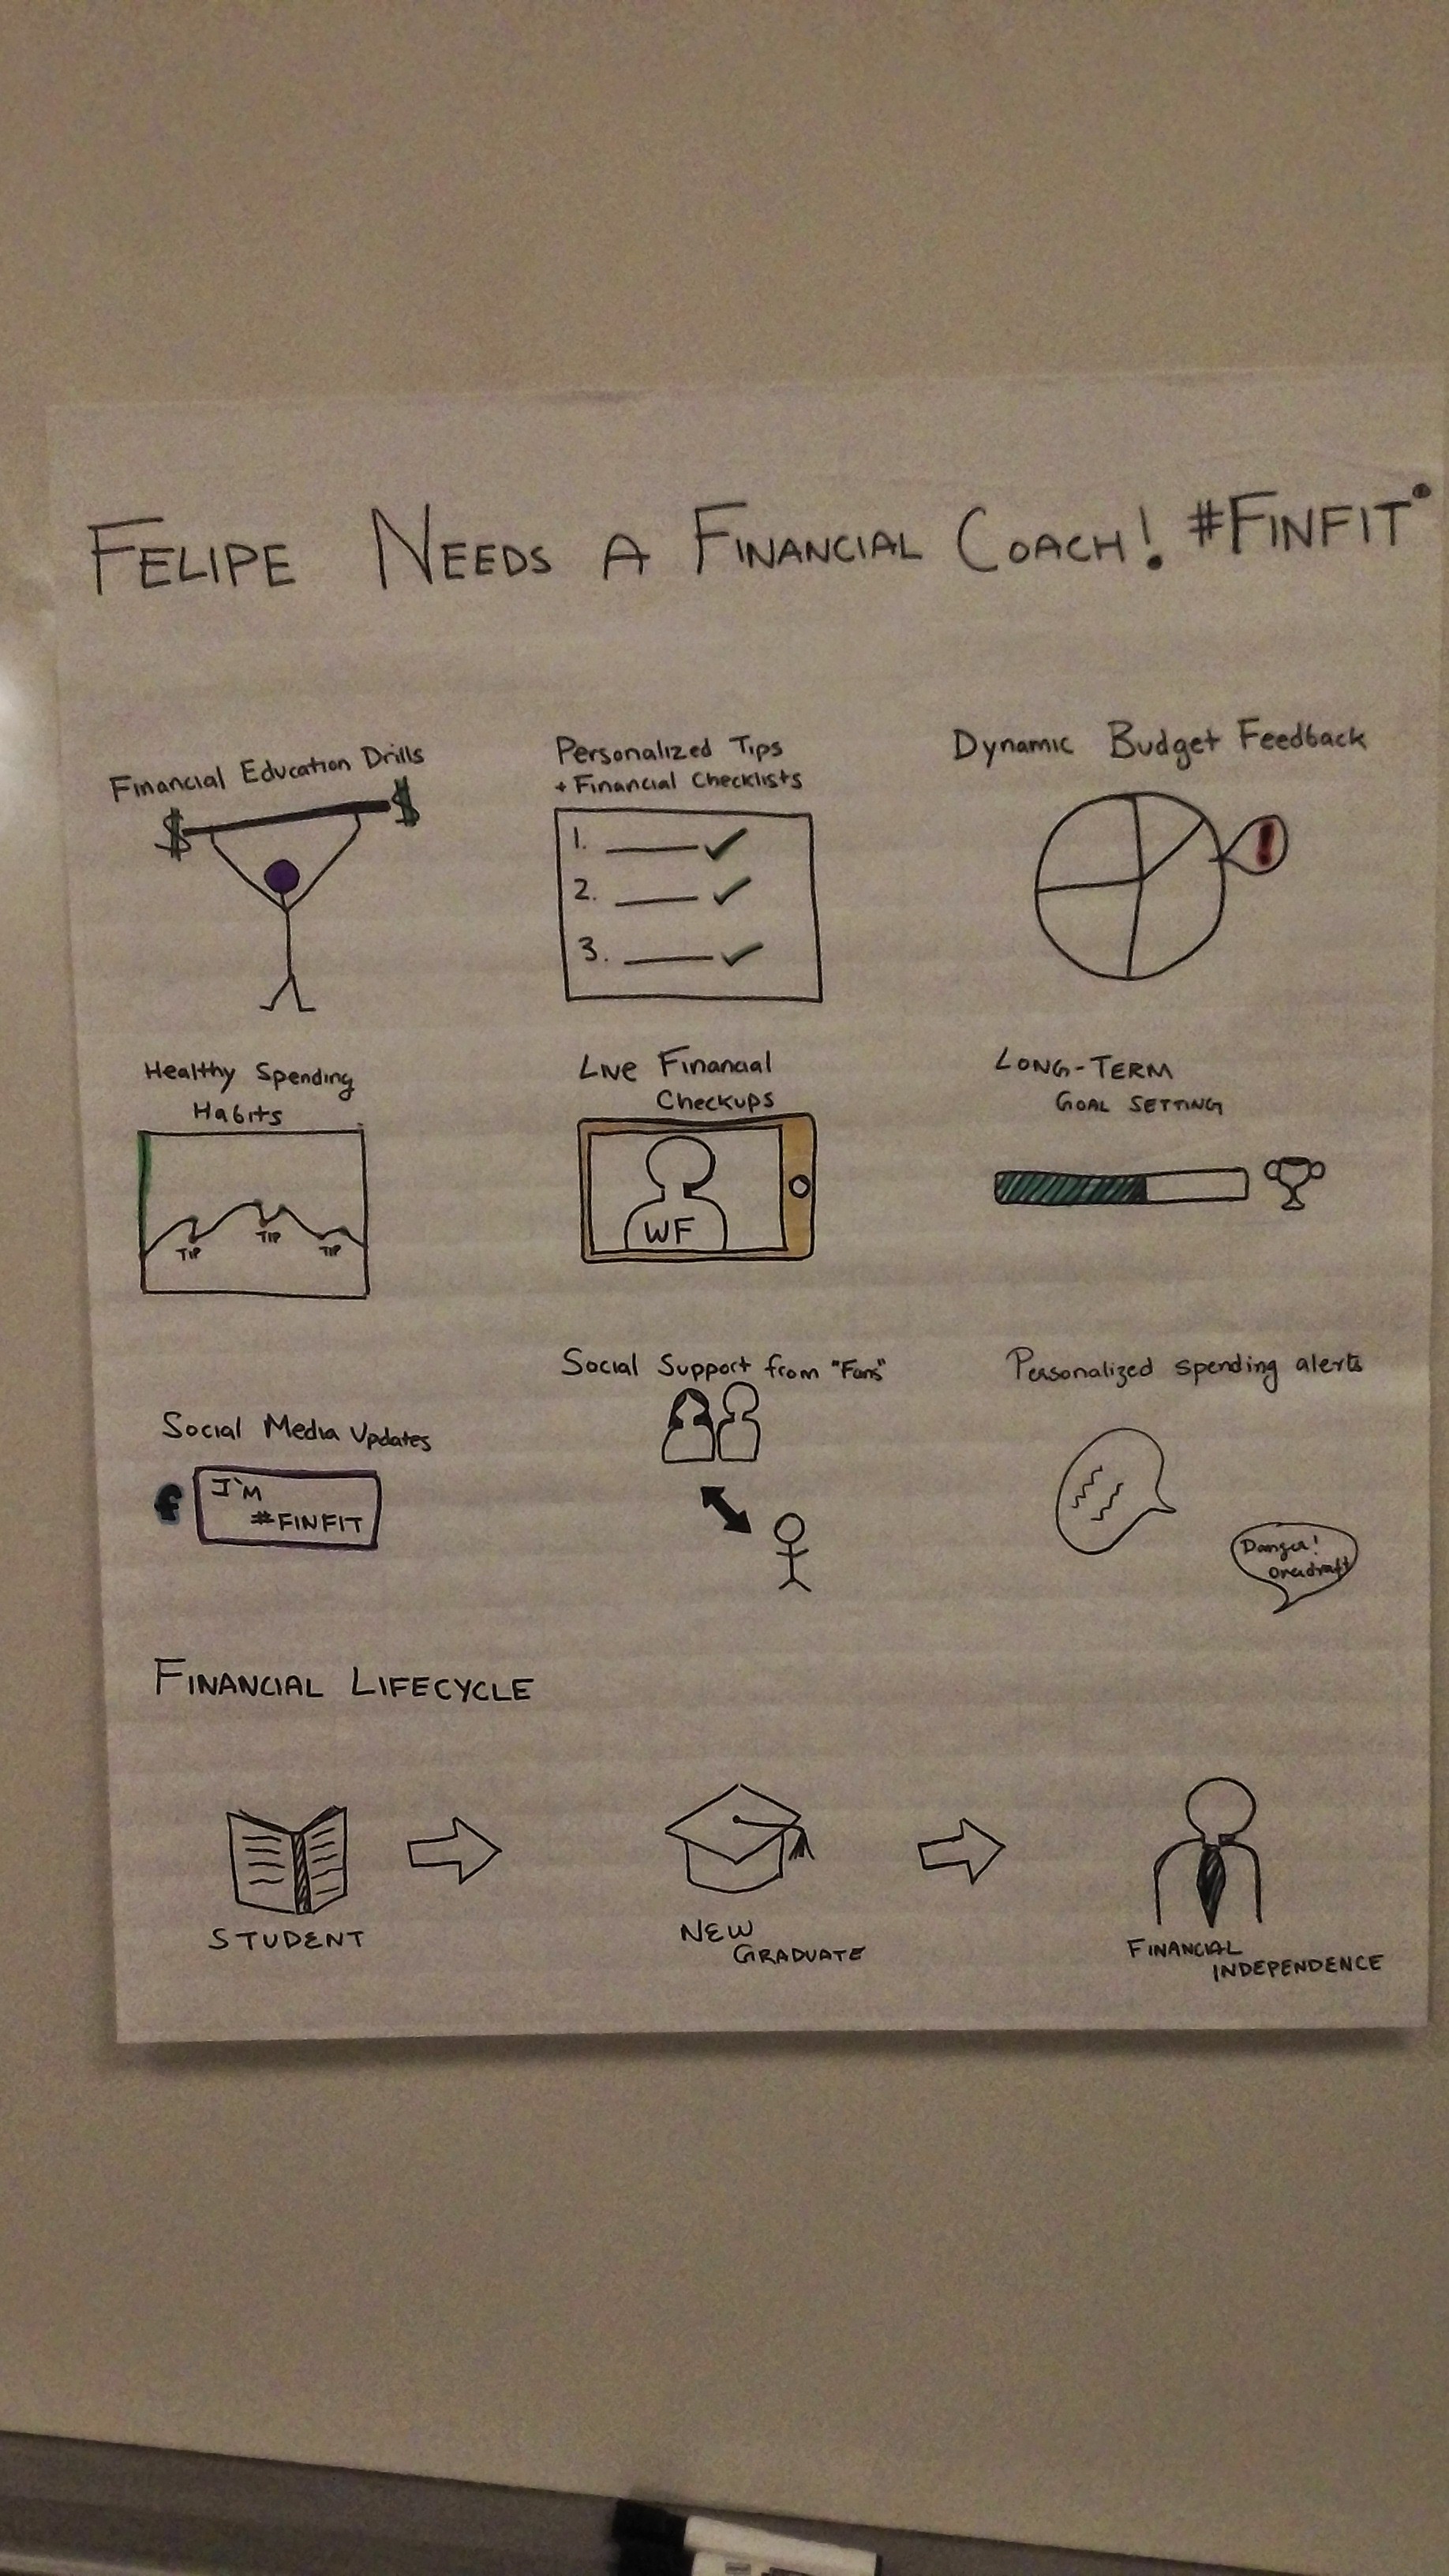 FELIPE NEEDS A FINANCIAL COACH! #FINFIT
Financial Education Drills
$ $
Personalized Tips
+ Financial Checklists
1.
2.
3.
Dynamic Budget Feedback
!
Healthy Spending
Habits
TIP TIP TIP
Live Financial
Checkups
WF
LONG-TERM
GOAL SETTING
Social Media Updates
f
I'M
#FINFIT
Social Support from "Fans"
Personalized spending alerts
Danger!
Overdraft
FINANCIAL LIFECYCLE
STUDENT
NEW
GRADUATE
FINANCIAL
INDEPENDENCE